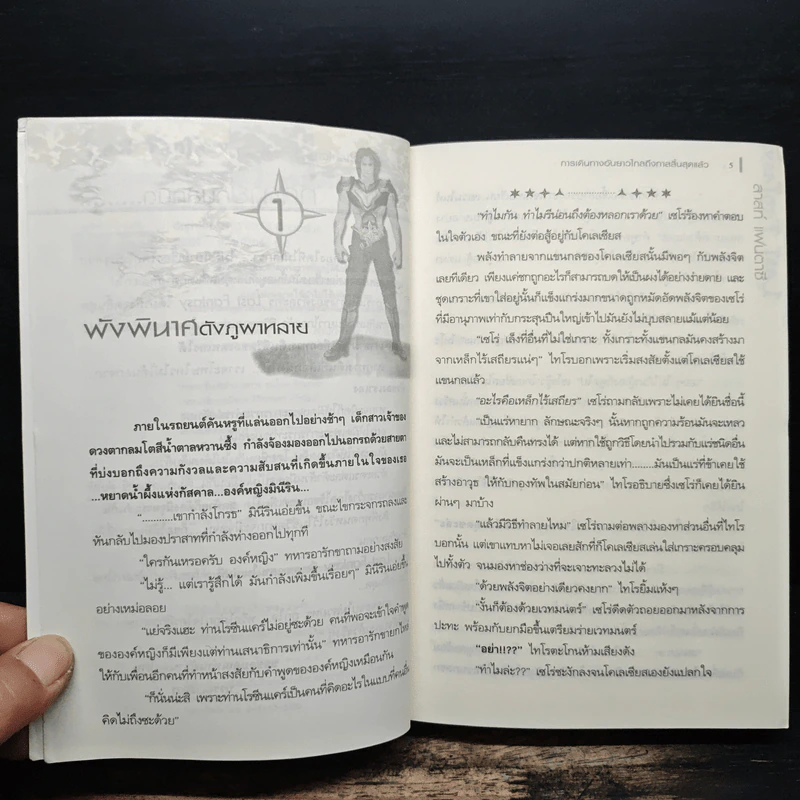 1
พังพินาศดังภูผาทลาย
ภายในรถยนต์คันหรูที่แล่นออกไปอย่างช้าๆ เด็กสาวเจ้าของ
ดวงตากลมโตสีน้ำตาลหวานซึ้ง กำลังจ้องมองออกไปนอกรถด้วยสายตา
ที่บ่งบอกถึงความกังวลและความสับสนที่เกิดขึ้นภายในใจของเธอ
...หยาดน้ำผึ้งแห่งกัสตาล...องค์หญิงมินีริน...
“..........เขากำลังโกรธ” มินีรินเอ่ยขึ้น ขณะไขกระจกรถลงและ
หันกลับไปมองปราสาทที่กำลังห่างออกไปทุกที
“ใครกันเหรอครับ องค์หญิง” ทหารอารักขาถามอย่างสงสัย
“ไม่รู้... แต่เรารู้สึกได้ มันกำลังเพิ่มขึ้นเรื่อยๆ” มินีรินเอ่ยขึ้น
อย่างเหม่อลอย
“แย่จริงแฮะ ท่านโรซีนแคร์ไม่อยู่ซะด้วย คนที่พอจะเข้าใจคำพูด
ขององค์หญิงก็มีเพียงแต่ท่านเสนาธิการเท่านั้น” ทหารอารักขายกไหล่
ให้กับเพื่อนอีกคนที่ทำหน้าสงสัยกับคำพูดขององค์หญิงเหมือนกัน
“ก็นั่นน่ะสิ เพราะท่านโรซีนแคร์เป็นคนที่คิดอะไรในแบบที่คนอื่น
คิดไม่ถึงซะด้วย”
การเดินทางอันยาวไกลถึงกาลสิ้นสุดแล้ว 5
“ทำไมกัน ทำไมรีน่อนถึงต้องหลอกเราด้วย” เซโร่ร้องหาคำตอบ
ในใจตัวเอง ขณะที่ยังต่อสู้อยู่กับโคเลเซียส
พลังทำลายจากแขนกลของโคเลเซียสนั้นมีพอๆ กับพลังจิต
เลยทีเดียว เพียงแค่ชกถูกอะไรก็สามารถบดให้เป็นผงได้อย่างง่ายดาย และ
ชุดเกราะที่เขาใส่อยู่นั้นก็แข็งแกร่งมากขนาดถูกหมัดอัดพลังจิตของเซโร่
ที่มีอานุภาพเท่ากับกระสุนปืนใหญ่เข้าไปมันยังไม่บุบสลายแม้แต่น้อย
“เซโร่ เล็งที่อื่นที่ไม่ใช่เกราะ ทั้งเกราะทั้งแขนกลมันคงสร้างมา
จากเหล็กไร้เสถียรแน่ๆ” ไทโรบอกเพราะเริ่มสงสัยตั้งแต่โคเลเซียสใช้
แขนกลแล้ว
“อะไรคือเหล็กไร้เสถียร” เซโร่ถามกลับเพราะไม่เคยได้ยินชื่อนี้
“เป็นแร่หายาก ลักษณะจริงๆ นั้นหากถูกความร้อนมันจะเหลว
และไม่สามารถกลับคืนทรงได้ แต่หากใช้ถูกวิธีโดยนำไปรวมกับแร่ชนิดอื่น
มันจะเป็นเหล็กที่แข็งแกร่งกว่าปกติหลายเท่า.......มันเป็นแร่ที่ข้าเคยใช้
สร้างอาวุธ ให้กับกองทัพในสมัยก่อน” ไทโรอธิบายซึ่งเซโร่ก็เคยได้ยิน
ผ่านๆ มาบ้าง
“แล้วมีวิธีทำลายไหม” เซโร่ถามต่อพลางมองหาส่วนอื่นที่ไทโร
บอกนั้น แต่เขาแทบหาไม่เจอเลยสักที่ก็โคเลเซียสเล่นใส่เกราะครอบคลุม
ไปทั้งตัว จนมองหาช่องว่างที่จะเจาะทะลวงไม่ได้
“ด้วยพลังจิตอย่างเดียวคงยาก” ไทโรยิ้มแห้งๆ
“งั้นก็ต้องด้วยเวทมนตร์” เซโร่ดีดตัวถอยออกมาหลังจากการ
ปะทะ พร้อมกับยกมือขึ้นเตรียมร่ายเวทมนตร์
“อย่า!!??” ไทโรตะโกนห้ามเสียงดัง
“ทำไมล่ะ??” เซโร่ชะงักลงจนโคเลเซียสเองยังแปลกใจ